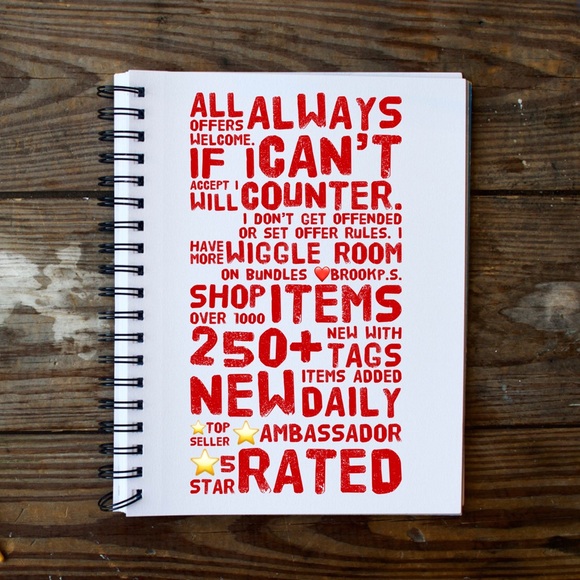 ALL OFFERS ALWAYS
WELCOME.
IF I CAN'T
ACCEPT I
WILL COUNTER.
I DON'T GET OFFENDED
OR SET OFFER RULES. I
HAVE MORE WIGGLE ROOM
ON BUNDLES ❤️BROOKP.S.
SHOP OVER 1000 ITEMS
250+ NEW WITH TAGS
NEW ITEMS ADDED DAILY
⭐TOP SELLER ⭐AMBASSADOR
⭐5 STAR RATED